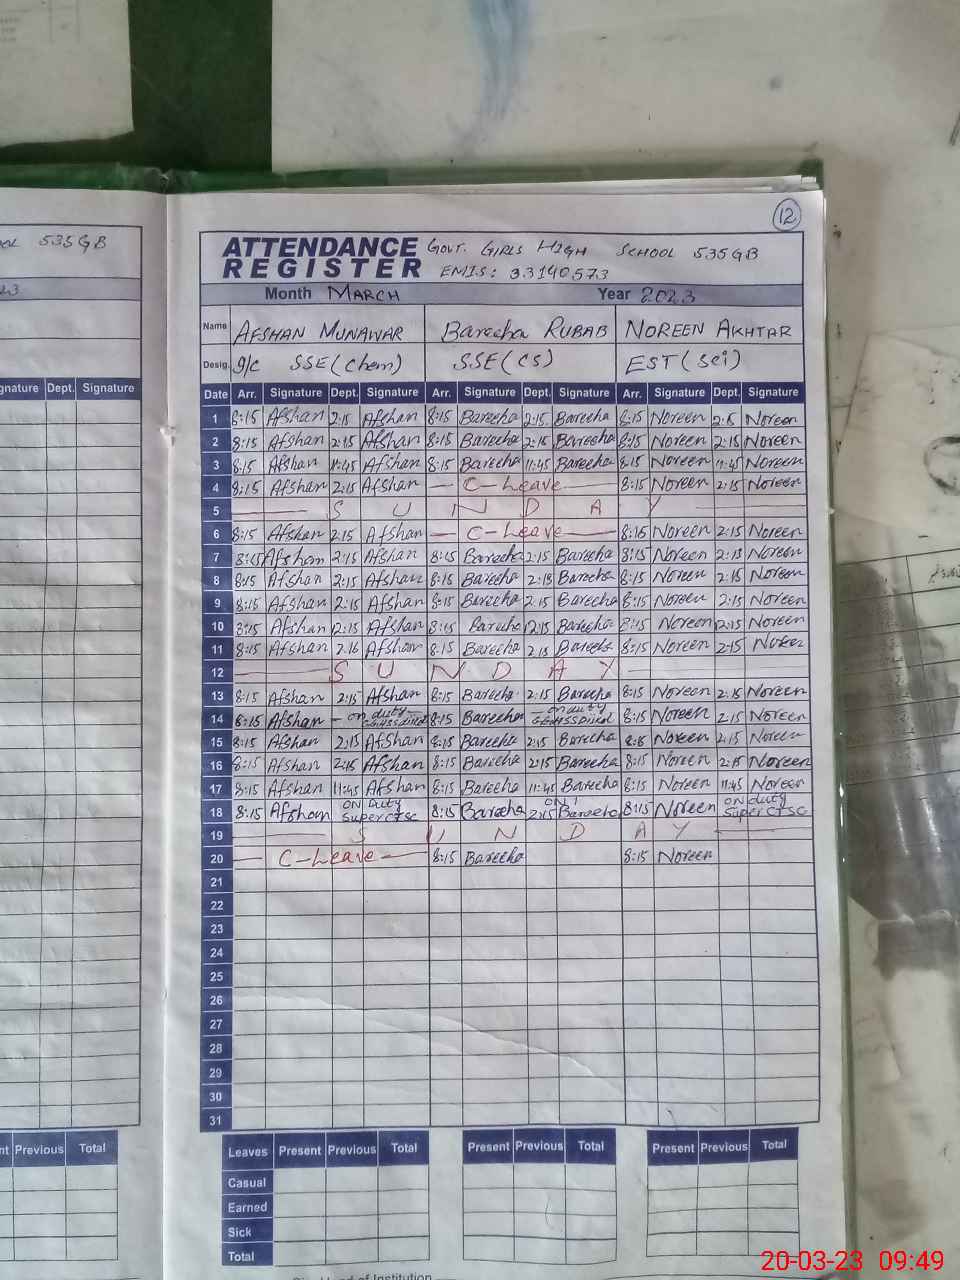 12
OOL 535 GB
ATTENDANCE REGISTER
GOVT. GIRLS HIGH SCHOOL 535 GB
EMIS: 33140573
Month MARCH Year 2023
Name AFSHAN MUNAWAR Bareeha RUBAB NOREEN AKHTAR
Desig. I/C SSE (Chem) SSE (CS) EST (Sci)
Signature Dept. Signature
Date Arr. Signature Dept. Signature Arr. Signature Dept. Signature Arr. Signature Dept. Signature
1 8:15 Afshan 2:15 Afshan 8:15 Bareeha 2:15 Bareeha 8:15 Noreen 2:15 Noreen
2 8:15 Afshan 2:15 Afshan 8:15 Bareeha 2:15 Bareeha 8:15 Noreen 2:15 Noreen
3 8:15 Afshan 11:45 Afshan 8:15 Bareeha 11:45 Bareeha 8:15 Noreen 11:45 Noreen
4 8:15 Afshan 2:15 Afshan C-Leave 8:15 Noreen 2:15 Noreen
5 SUNDAY
6 8:15 Afshan 2:15 Afshan C-Leave 8:15 Noreen 2:15 Noreen
7 8:15 Afshan 2:15 Afshan 8:15 Bareeha 2:15 Bareeha 8:15 Noreen 2:15 Noreen
8 8:15 Afshan 2:15 Afshan 8:15 Bareeha 2:15 Bareeha 8:15 Noreen 2:15 Noreen
9 8:15 Afshan 2:15 Afshan 8:15 Bareeha 2:15 Bareeha 8:15 Noreen 2:15 Noreen
10 8:15 Afshan 2:15 Afshan 8:15 Bareeha 2:15 Bareeha 8:15 Noreen 2:15 Noreen
11 8:15 Afshan 2:15 Afshan 8:15 Bareeha 2:15 Bareeha 8:15 Noreen 2:15 Noreen
12 SUNDAY
13 8:15 Afshan 2:15 Afshan 8:15 Bareeha 2:15 Bareeha 8:15 Noreen 2:15 Noreen
14 8:15 Afshan on duty 8:15 Bareeha on duty 8:15 Noreen 2:15 Noreen
15 8:15 Afshan 2:15 Afshan 8:15 Bareeha 2:15 Bareeha 8:15 Noreen 2:15 Noreen
16 8:15 Afshan 2:15 Afshan 8:15 Bareeha 2:15 Bareeha 8:15 Noreen 2:15 Noreen
17 8:15 Afshan 11:45 Afshan 8:15 Bareeha 11:45 Bareeha 8:15 Noreen 11:45 Noreen
18 8:15 Afshan ON Duty 8:15 Bareeha 2:15 Bareeha 8:15 Noreen ON duty
19 SUNDAY
20 C-Leave 8:15 Bareeha 8:15 Noreen
21
22
23
24
25
26
27
28
29
30
31
Previous Total
Leaves Present Previous Total Present Previous Total Present Previous Total
Casual
Earned
Sick
Total
20-03-23 09:49